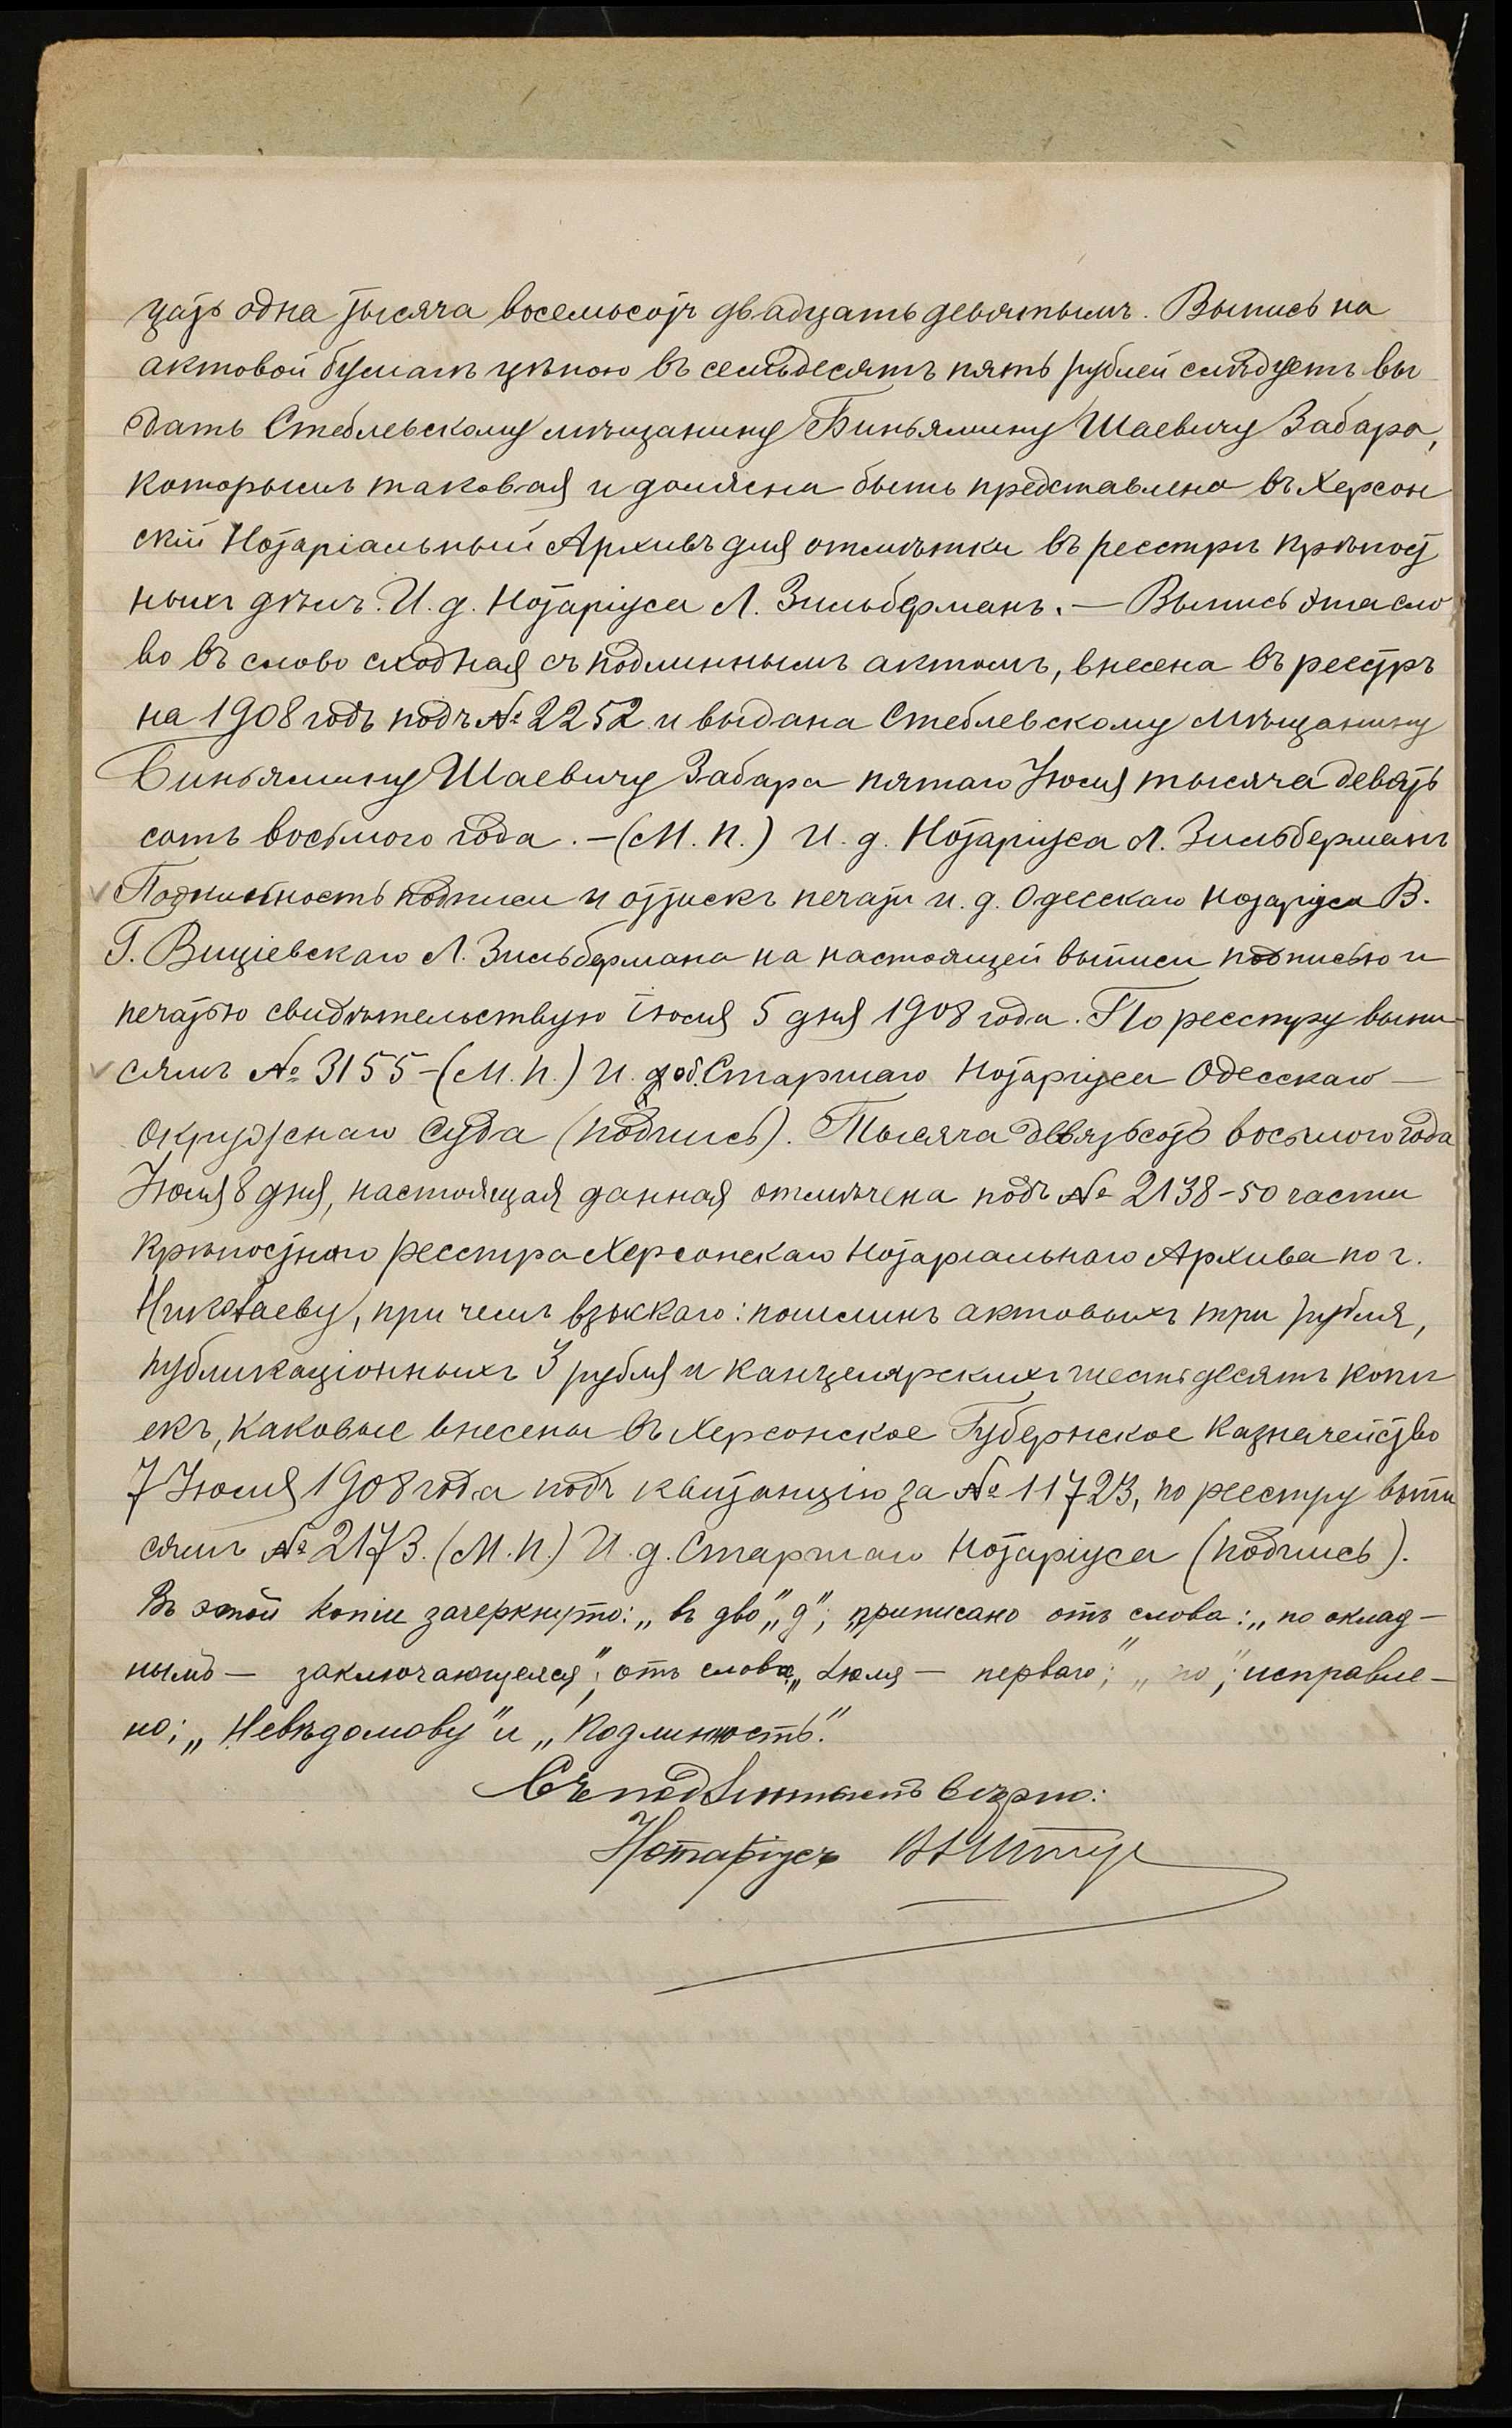 цать одна тысяча восемьсотъ двадцать девятымъ. Выпись на
актовой бумагѣ цѣною въ семьдесятъ пять рублей слѣдуетъ вы
дать Стеблевскому мѣщанину Биньямину Шаевичу Забара,
которымъ таковая и должна быть представлена въ Херсон
скій Нотаріальный Архивъ для отмѣтки въ реестрѣ крѣпост
ныхъ дѣлъ. И. д. Нотаріуса Л. Зильберманъ. — Выпись эта сло
во въ слово сходная съ подлиннымъ актомъ, внесена въ реестръ
на 1908 годъ подъ № 2252 и выдана Стеблевскому мѣщанину
Биньямину Шаевичу Забара пятаго Іюля тысяча девять
сотъ восьмого года. — (М. П.) И. д. Нотаріуса Л. Зильберманъ
Подлинность подписи и оттискъ печати и. д. Одесскаго Нотаріуса В.
Г. Вицієвскаго Л. Зильбермана на настоящей выписи подписью и
печатью свидѣтельствую іюля 5 дня 1908 года. По реестру выпи-
сямъ № 3155 - (М. П.) И. об. Старшаго Нотаріуса Одесскаго —
Окружнаго Суда (подпись). Тысяча девятьсотъ восьмого года
Іюля 8 дня, настоящая данная отмѣчена подъ № 2138 - 50 части
Крѣпостного реестра Херсонскаго Нотаріальнаго Архива по г.
Николаеву, при чемъ взыскано: пошлинъ актовыхъ три рубля,
публикаціонныхъ 3 рубля и канцелярскихъ шестьдесятъ копѣ
екъ, каковые внесены въ Херсонское Губернское Казначейство
7 Іюля 1908 года подъ квитанцію за № 11723, по реестру выпи
сямъ № 2173. (М. П.) И. д. Старшаго Нотаріуса (подпись).
Въ этой копіи зачеркнуто: „въ дво", „д"; приписано отъ слова: „по оклад-
нымъ — заключающуюся", отъ слова „Іюля — перваго"; „по"; исправле-
но; „Невѣдомову" и „подлинность".
Съ подлиннымъ вѣрно:
Нотаріусъ